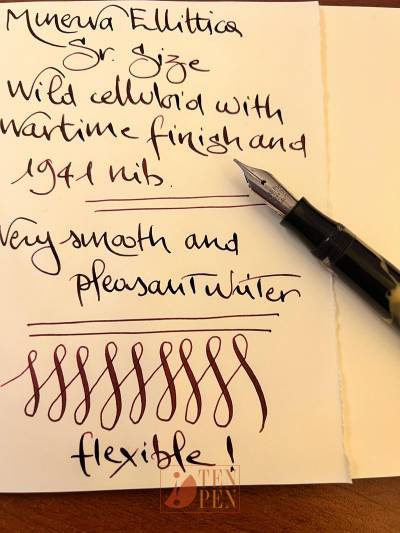 Minerva Ellittica
Sr. Size
Wild celluloid with
wartime finish and
1941 nib.
Very smooth and
pleasant writer
flexible!
TEN
PEN